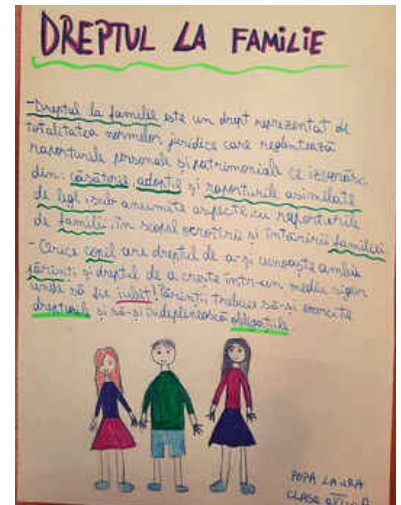 DREPTUL LA FAMILIE
-Dreptul la familie este un drept reprezentat de
totalitatea normelor juridice care reglementează
raporturile personale și patrimoniale ce izvorăsc
din: căsătorie, adopție și raporturile asimilate
de legi, sub anumite aspecte, cu raporturile
de familie, în scopul ocrotirii și întăririi familiei
- Orice copil are dreptul de a-și cunoaște ambii
părinți și dreptul de a crește într-un mediu sigur
unde să fie iubit! Părinții trebuie să-și exercite
drepturile și să-și îndeplinească obligațiile.
POPA LAURA
CLASA